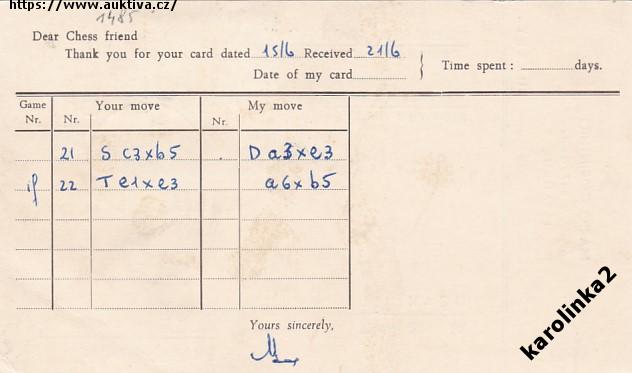 https://www.auktiva.cz/
1485
Dear Chess friend
Thank you for your card dated 15/6 Received 21/6
Date of my card Time spent : days.
Game Nr. Nr. Your move Nr. My move
21 S c3xb5 . D a3xe3
if 22 T e1xe3 a6xb5
Yours sincerely,
karolinka2